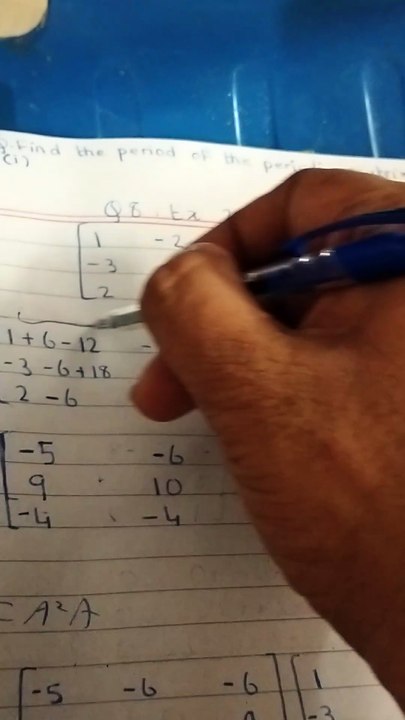 Find the period of the
(i)
Q8 Ex
1 -2
-3
2
1+6-12 -
-3-6+18
2-6
-5 -6
9 10
-4 -4
= A²A
-5 -6 -6 1
-3